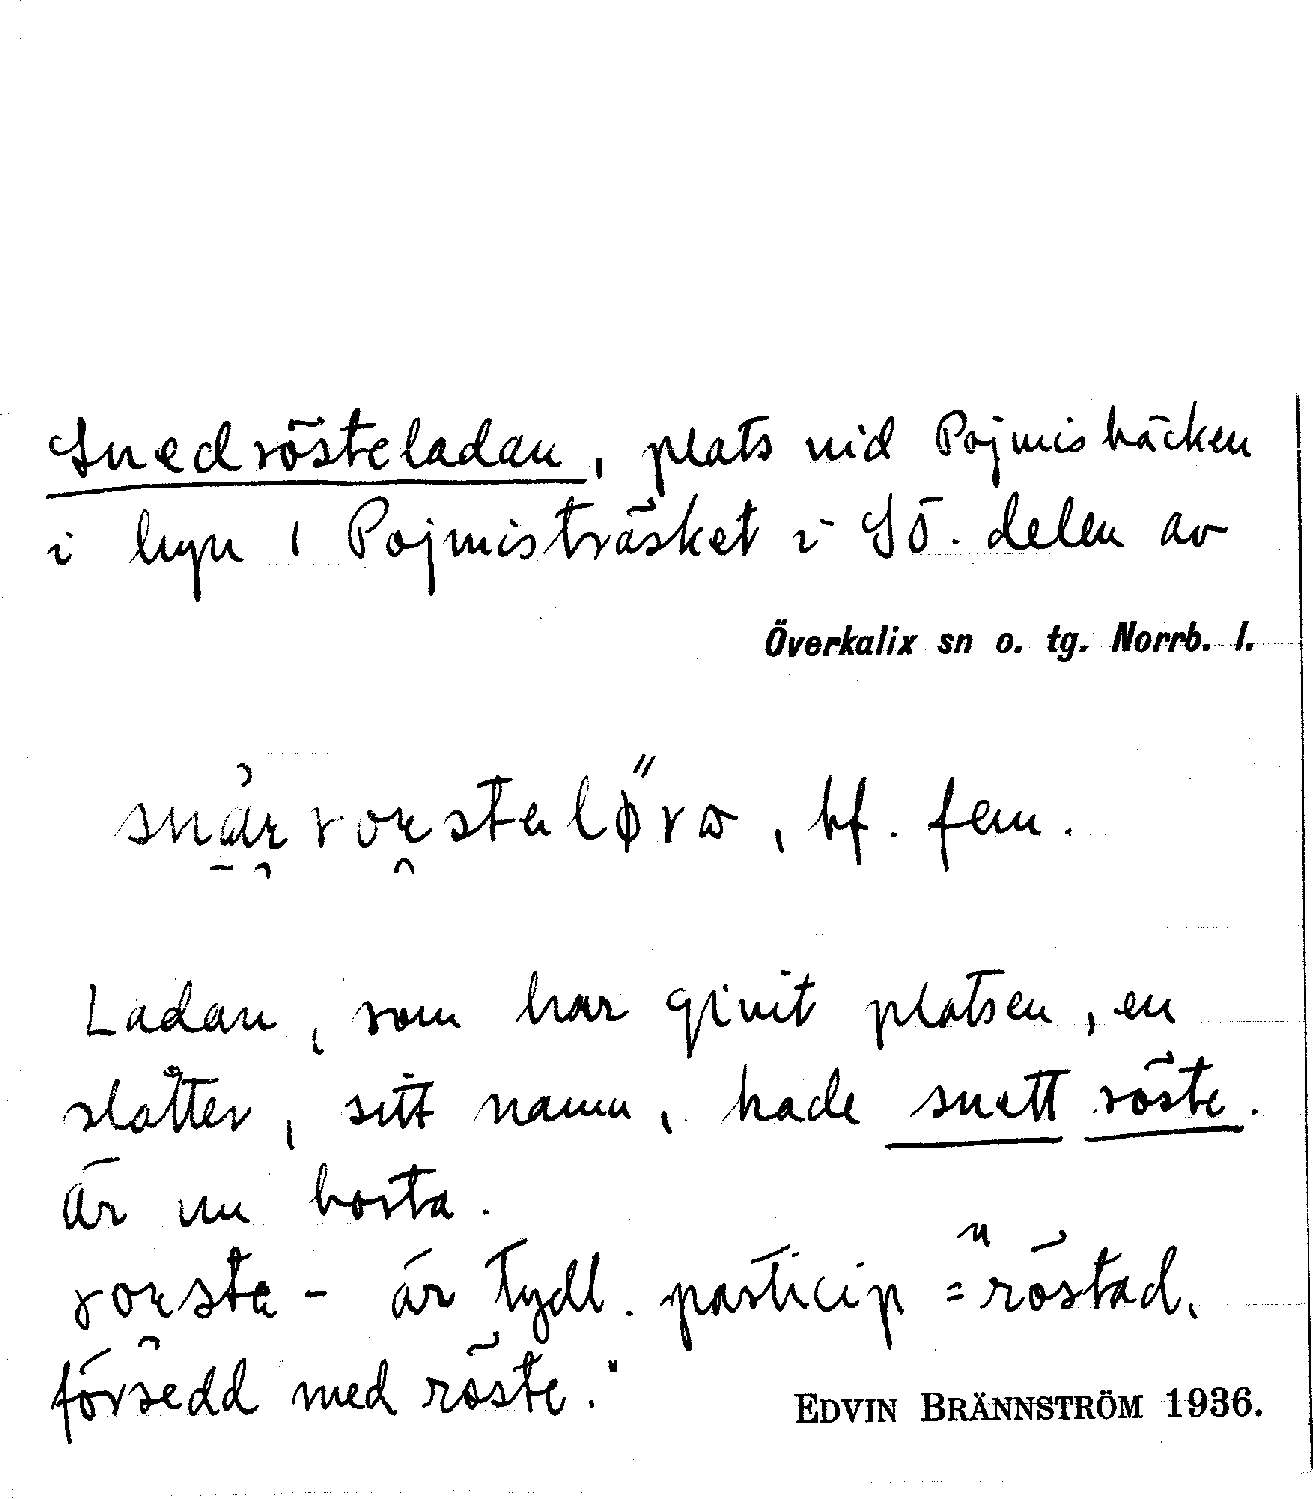 Snedrösteladan, plats vid Pojmisbäcken
i byn / Pojmisträsket i SÖ. delen av
Överkalix sn o. tg. Norrb. l.
bf. fem.
Ladan, som har givit platsen, en
slåtter, sitt namn, hade snett röste.
Är nu borta.
är tydl. particip = "röstad,
försedd med röste."
EDVIN BRÄNNSTRÖM 1936.